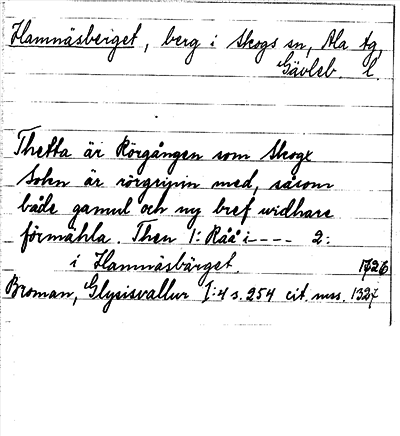 Hamnäsberget, berg i Skogs sn, Ala tg,
Gävleb. l.
Thetta är Rörgången som Skogx
Sokn är rörgripin med, såsom
både gamul och ny bref widhare
förmähla. Then 1: Råå i---- 2:
i Hamnäsbärget.
Broman, Glysisvallur I:4 s. 254 cit. mss. 1327